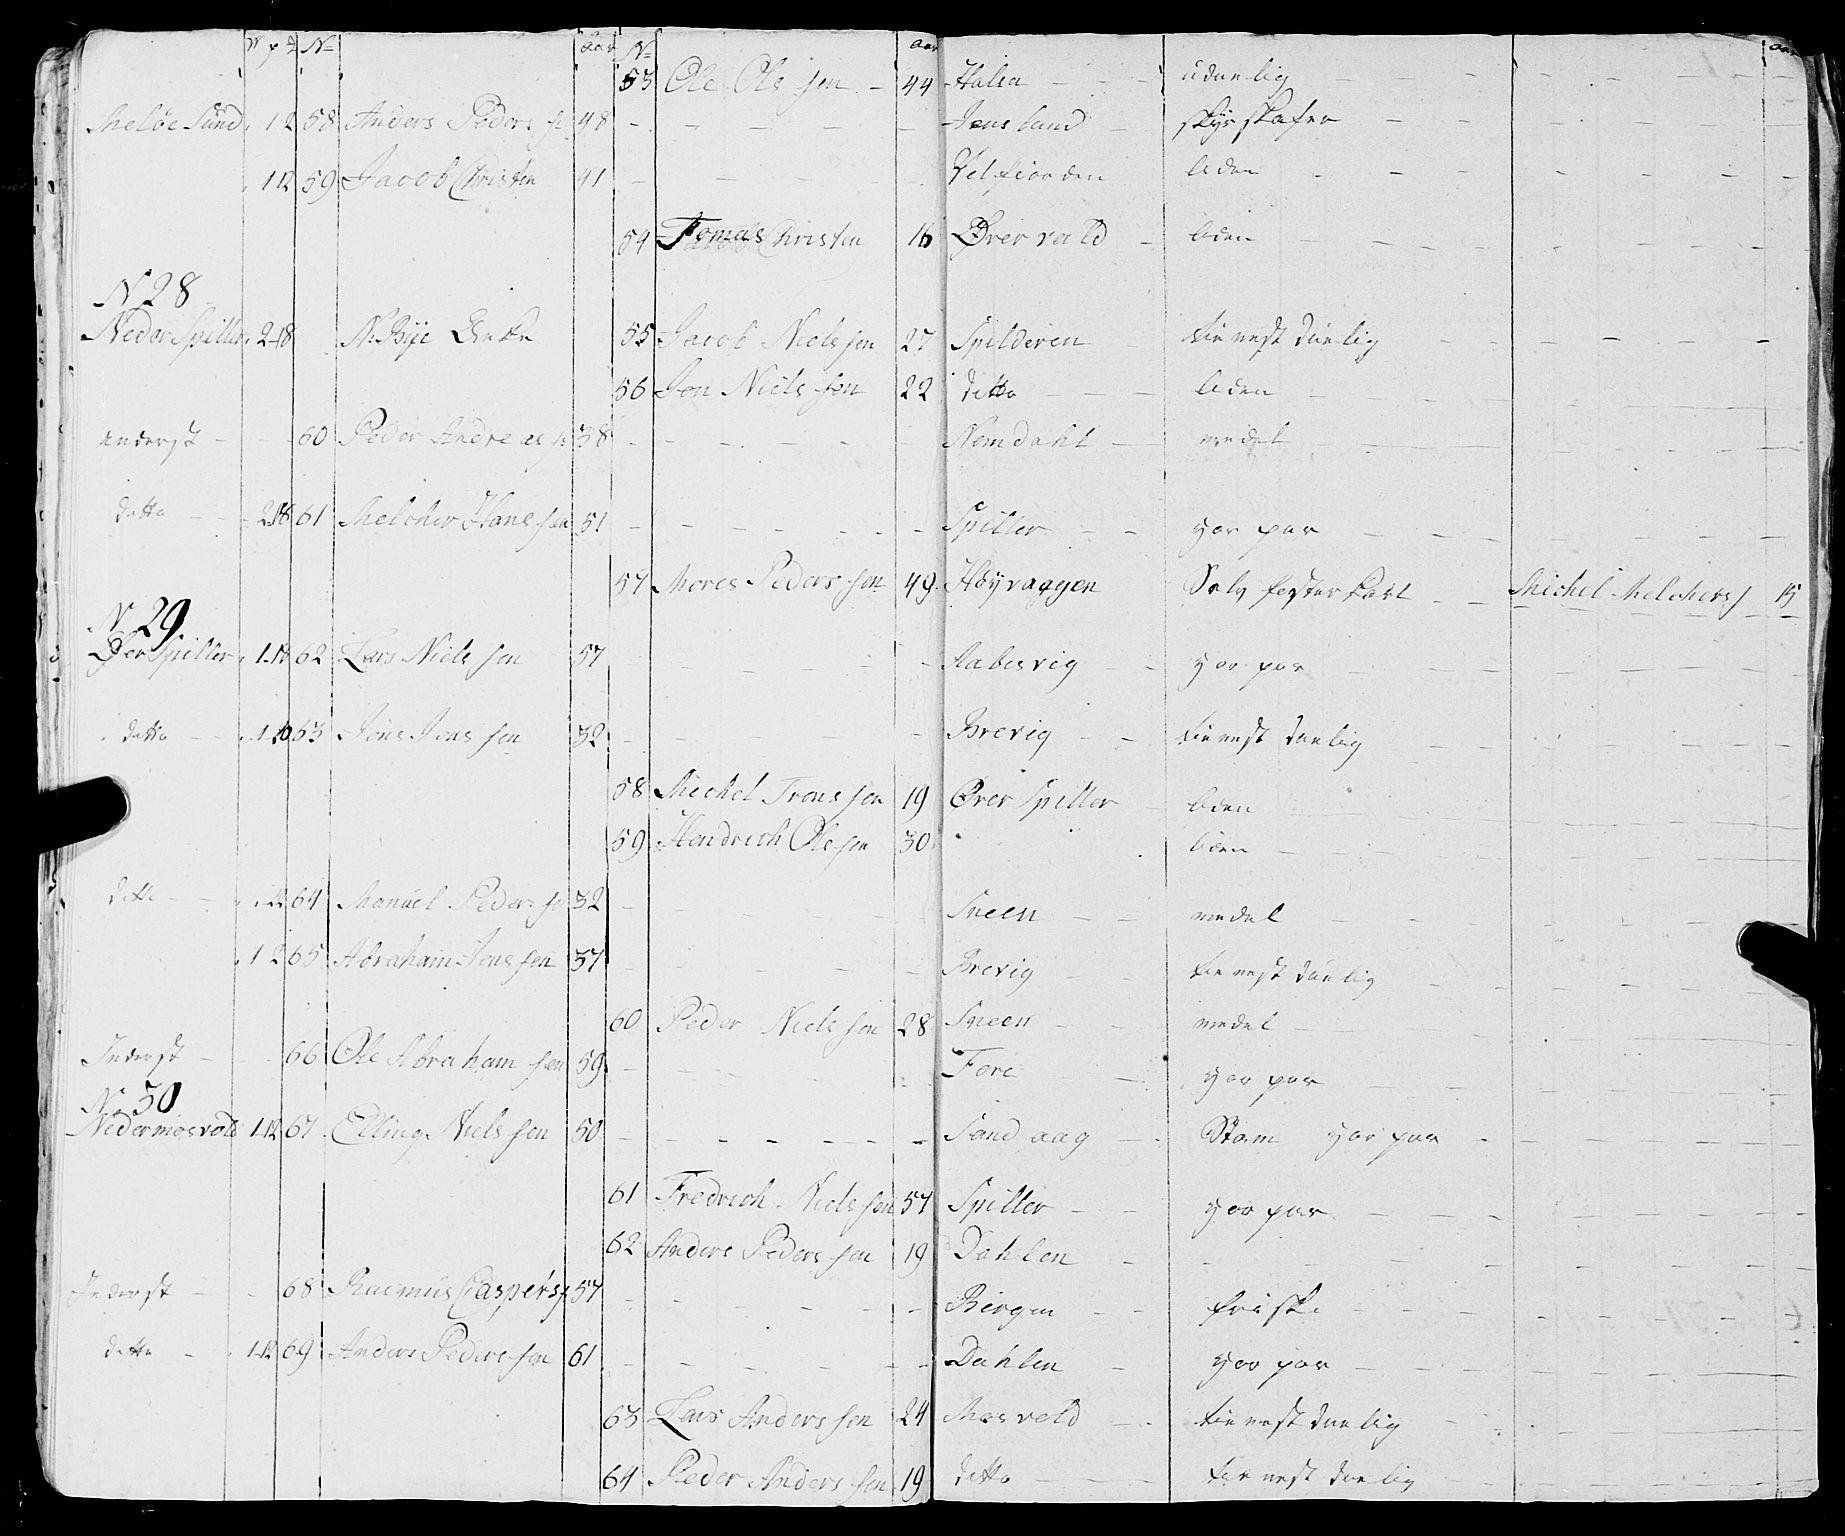 W p ₰ No aar No aar aar
53 Ole Ols sen 44 Halsa udanlig
Meløe Sund 1 2 58 Anders Peders s 48 Jens lund skys skafer
1 12 59 Jacob Christen 41 Velfiorden liden
54 Tomas Christen 16 Øver vald liden
N 28
Neder Spiller 2 18 N. Bye Enke 55 Jacob Niels sen 27 Spilderen tienest duelig
56 Jon Niels sen 22 ditto liden
Inderst 60 Peder Andreas s 38 Nemdahl medel
ditto 2 18 61 Melcher Hans sen 51 Spiller
57 Mores Peders sen 49 Høyvaagen Michel Melchers 15
N 29
Øver Spiller 1 18 62 Lars Niels sen 57 Aabesvig
ditto 1 10 63 Jons Jons sen 32 Brevig tienest duelig
58 Michel Trons sen 19 Øver Spiller liden
59 Hendrich Ole sen 30 liden
ditto 12 64 Manuel Peders s 32 Sneen medel
1 2 65 Abraham Jons sen 37 Brevig tienest duelig
60 Peder Niels sen 28 Sneen medel
Inderst 66 Ole Abraham sen 59 Fore
N 30
Nedermosvold 1 12 67 Elling Niels sen 50 Sand aag
61 Fredrich Niels sen 57 Spiller
62 Anders Peders sen 19 Dahlen
Inderst 68 Rasmus Caspers s 57 Bergen friske
ditto 1 12 69 Anders Peders sen 61 Dahlen
63 Lars Anders sen 24 Mosvold tienest duelig
64 Peder Anders sen 19 ditto tienest duelig